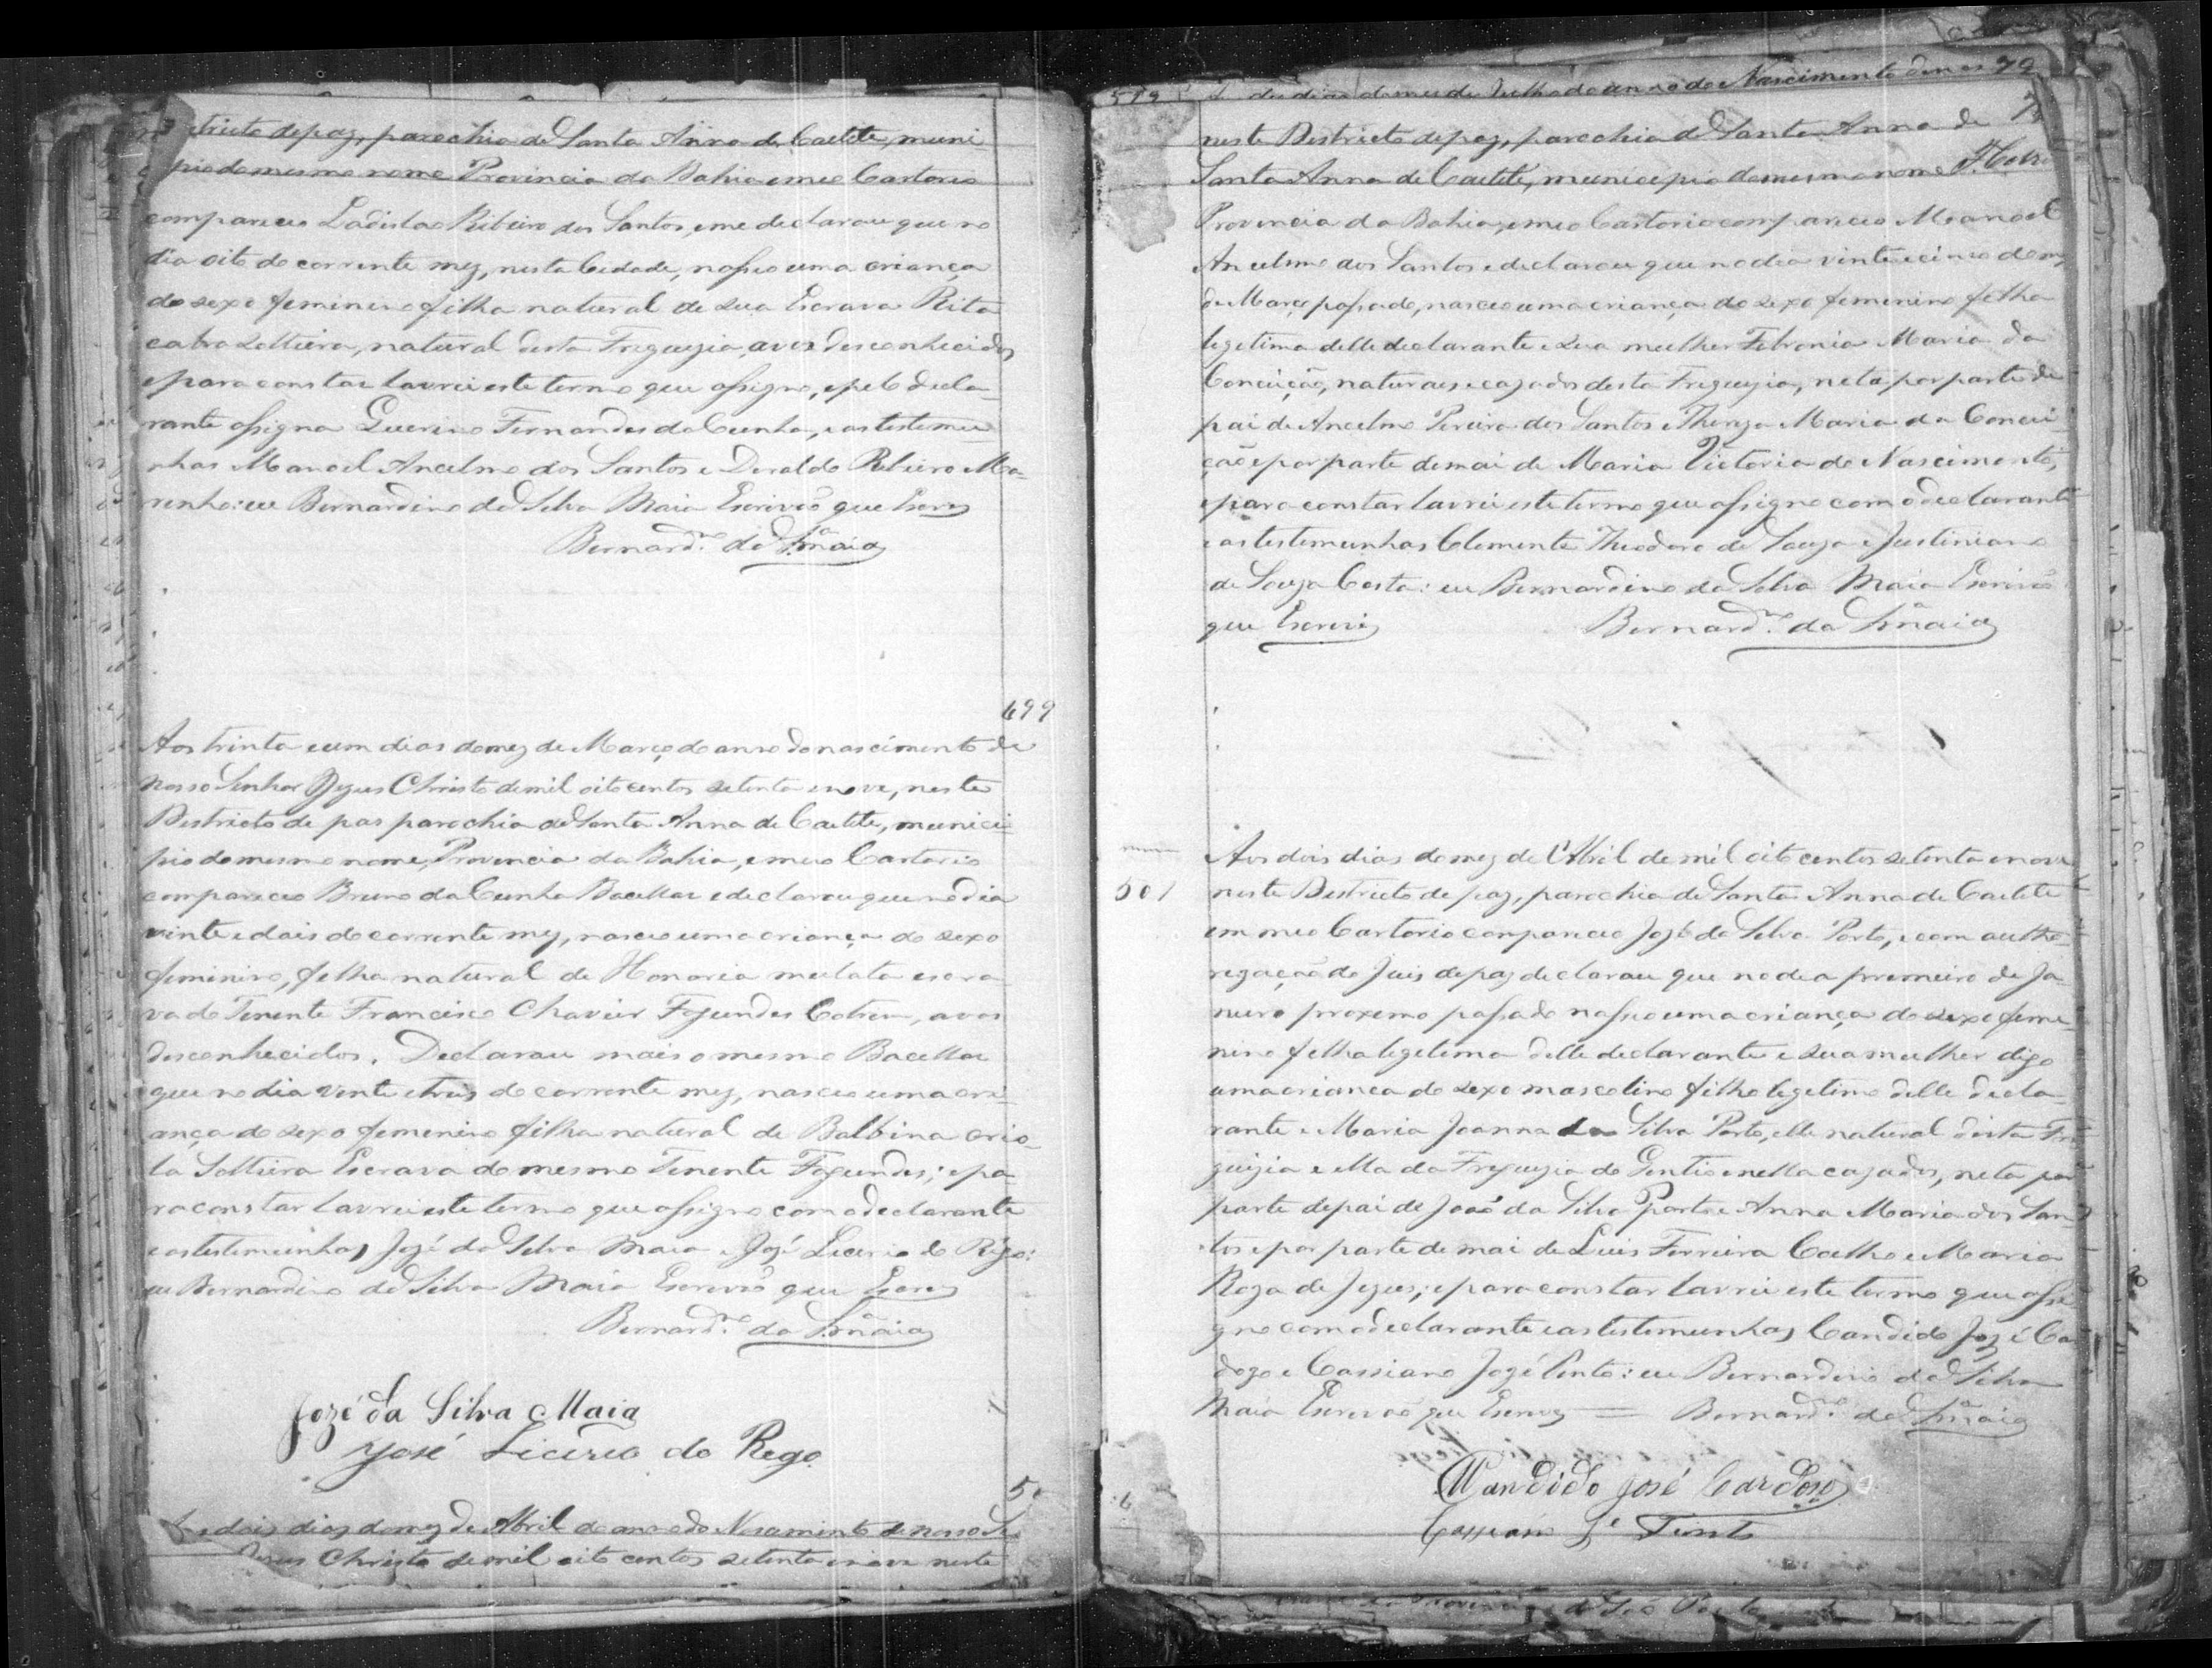 tricto de paz, parochia de Santa Anna de Caetité, muni
pio do mesmo nome Provincia da Bahia em meo Cartorio
compareceo Ladislao Ribeiro dos Santos, e me declarou que no
dia oito do corrente mez, nesta Cidade, nasseo uma criança
do sexo feminino filha natural de sua Escrava Rita
cabra solteira, natural desta Freguezia, avos desconhecidos
e para constar lavrei este termo que assigno, e pelo decla-
rante assigna Querino Fernandes da Cunha, e as testemu-
nhas Manoel Ancelmo dos Santos e Deraldo Ribeiro Ma-
renho: eu Bernardino da Silva Maia Escrivão que Escrevy
Bernardno da Sa Maia
499
Aos trinta e um dias do mez de Março do anno do nascimento de
nosso Senhor Jezus Christo de mil oito centos setenta e nove, neste
Destricto de pas parochia de Santa Anna de Caetité, munici-
pio do mesmo nome, Provincia da Bahia, e meo Cartorio
compareceo Bruno da Cunha Bacellar e declarou que no dia
vinte e dois do corrente mez, nasceo uma criança do sexo
feminino, filha natural de Honoria mulata escra
va do Tenente Francisco Chavier Fagundes Cotrim, avos
desconhecidos. Declarou mais o mesmo Bacellar
que no dia vente e treis do corrente mez, nasceo uma cri-
ança do sexo femenino filha natural de Balbina crio-
la Solteira Escrava do mesmo Tenente Fagundes; e pa-
ra constar lavrei este termo que assigno com o declarante
e as testemunhas José da Silva Maia e José Licerio do Rêgo:
eu Bernardino da Silva Maia Escrivão que Escrevy
Bernardno da Sa Maia
José da Silva Maia
José Licerio do Rego
Aos dois dias do mez de Abril do anno do Nascimento de nosso Se
Jesus Christo de mil oito centos setenta e nove neste
dias do mez de Julho do anno do Nascimento de nos
neste Destricto de paz, parochia de Santa Anna de
Santa Anna de Caetité, municipio do mesmo nome
Provincia da Bahia, e meo Cartorio compareceo Manoel
Ancelmo dos Santos e declarou que no dia vinte e cinco do mez
de Março passado, nasceo uma criança do sexo femenino filha
legitima delle declarante e sua mulher Febronia Maria da
Conceição, naturaes e cazados desta Freguezia, neta por parte de
pai de Ancelmo Pereira dos Santos e Thereza Maria da Concei-
ção e por parte de mai de Maria Victoria do Nascimento,
e para constar lavrei este termo que assigno com o declarante
e as testemunhas Clemente Theodoro de Souza e Justiniano
de Souza Costa: eu Bernardino da Silva Maia Escrivão
que Escrevi Bernardno da Sa Maia
Aos dois dias do mez de Abril de mil oito centos setenta e nove
501
neste Destricto de paz, parochia de Santa Anna de Caetité
em meo Cartorio compareceo José da Silva Porto, e com autho-
rização do Juis de paz declarou que no dia premeiro de Ja-
neiro proxemo passado nasseo uma criança do sexo feme-
nino filha legetema delle declarante e sua mulher digo
uma crianca do sexo mascolino filho legetimo delle decla-
rante e Maria Joanna da Silva Porto, elle natural desta Fre
guezia e ella da Freguezia do Gentio e nella cazados, neta por
parte de pai de João da Silva Porto e Anna Maria dos San-
tos e por parte de mai de Luis Ferreira Coelho e Maria
Roza de Jezus; e para constar lavrei este termo que assi
gno com o declarante e as testemunhas Candido José Car
dozo e Cassiano José Pinto: eu Bernardino da Silva
Maia Escrivão que Escrevy = Bernardno da Sa Maia
Candido José Cardoso
Cassiano Je Pinto